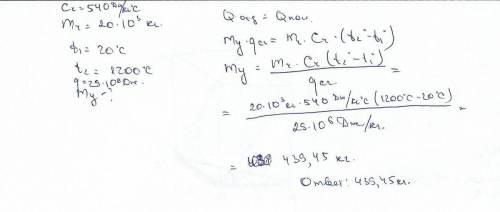 Cг = 540 Дж/кг°C
Mг = 20·10³ кг.
t₁ = 20°C
t₂ = 1200°C
q = 29·10⁶ Дж.
My - ?
Q отд = Q пол.
My · qсг = Mг · Cг · (t₂° - t₁°)
My = Mг · Cг (t₂° - t₁°) / qсг =
= 20·10³ кг · 540 Дж/кг°C (1200°C - 20°C) / 29·10⁶ Дж/кг. =
= 439,45 кг.
Ответ: 439,45 кг.